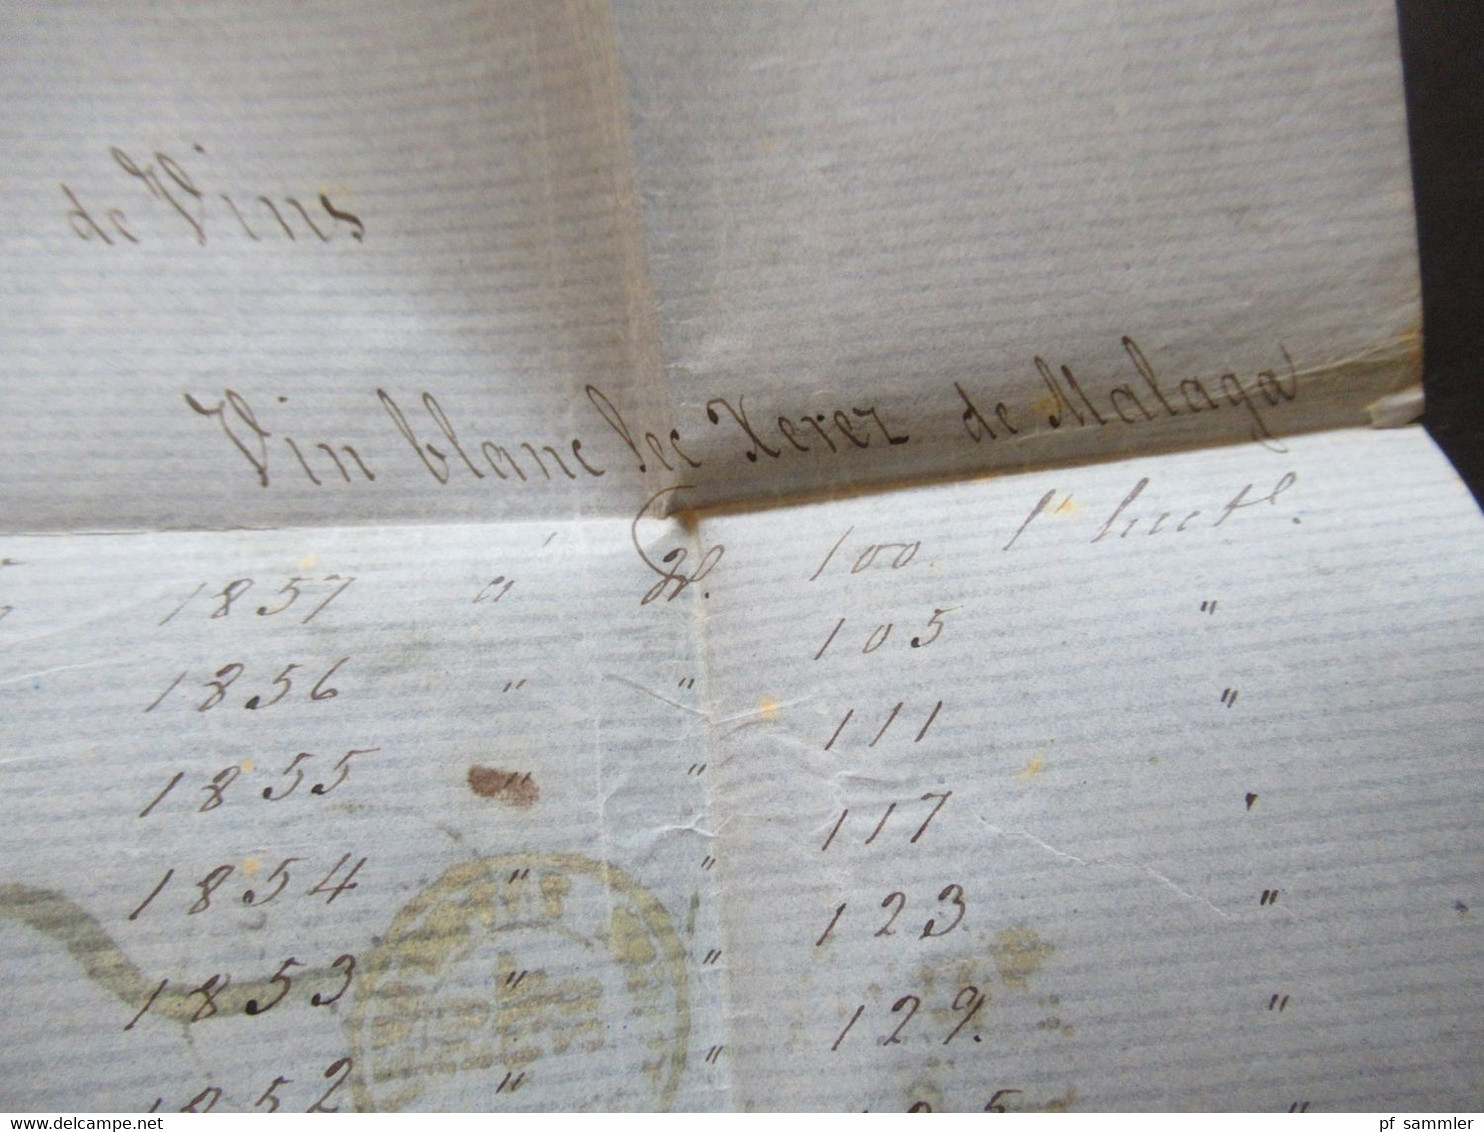 de Vins
Vin blanc sec Xerez de Malaga
1857 a' 100. l'hectl.
1856 " " 105 "
1855 " " 111 "
1854 " " 117 "
1853 " " 123 "
1852 " " 129. "
delcampe.net
pf_sammler